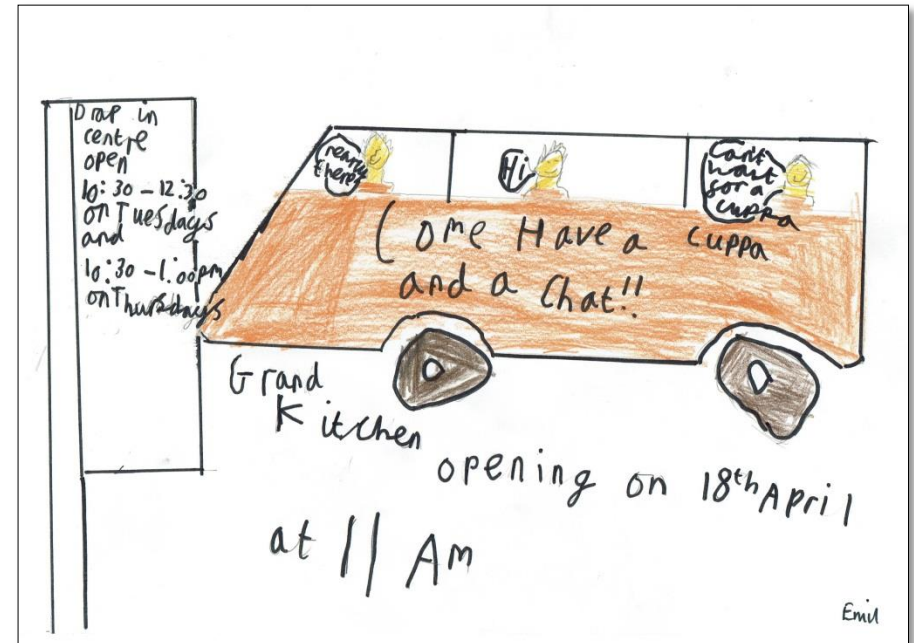 Drop in
centre
open
10:30 - 12:30
on Tuesdays
and
10:30 - 1:00pm
on Thursdays
nearly
there!
Hi
Can't
wait
for a
cuppa
Come Have a cuppa
and a Chat!!
Grand
Kitchen
opening on 18th April
at 11 Am
Emil